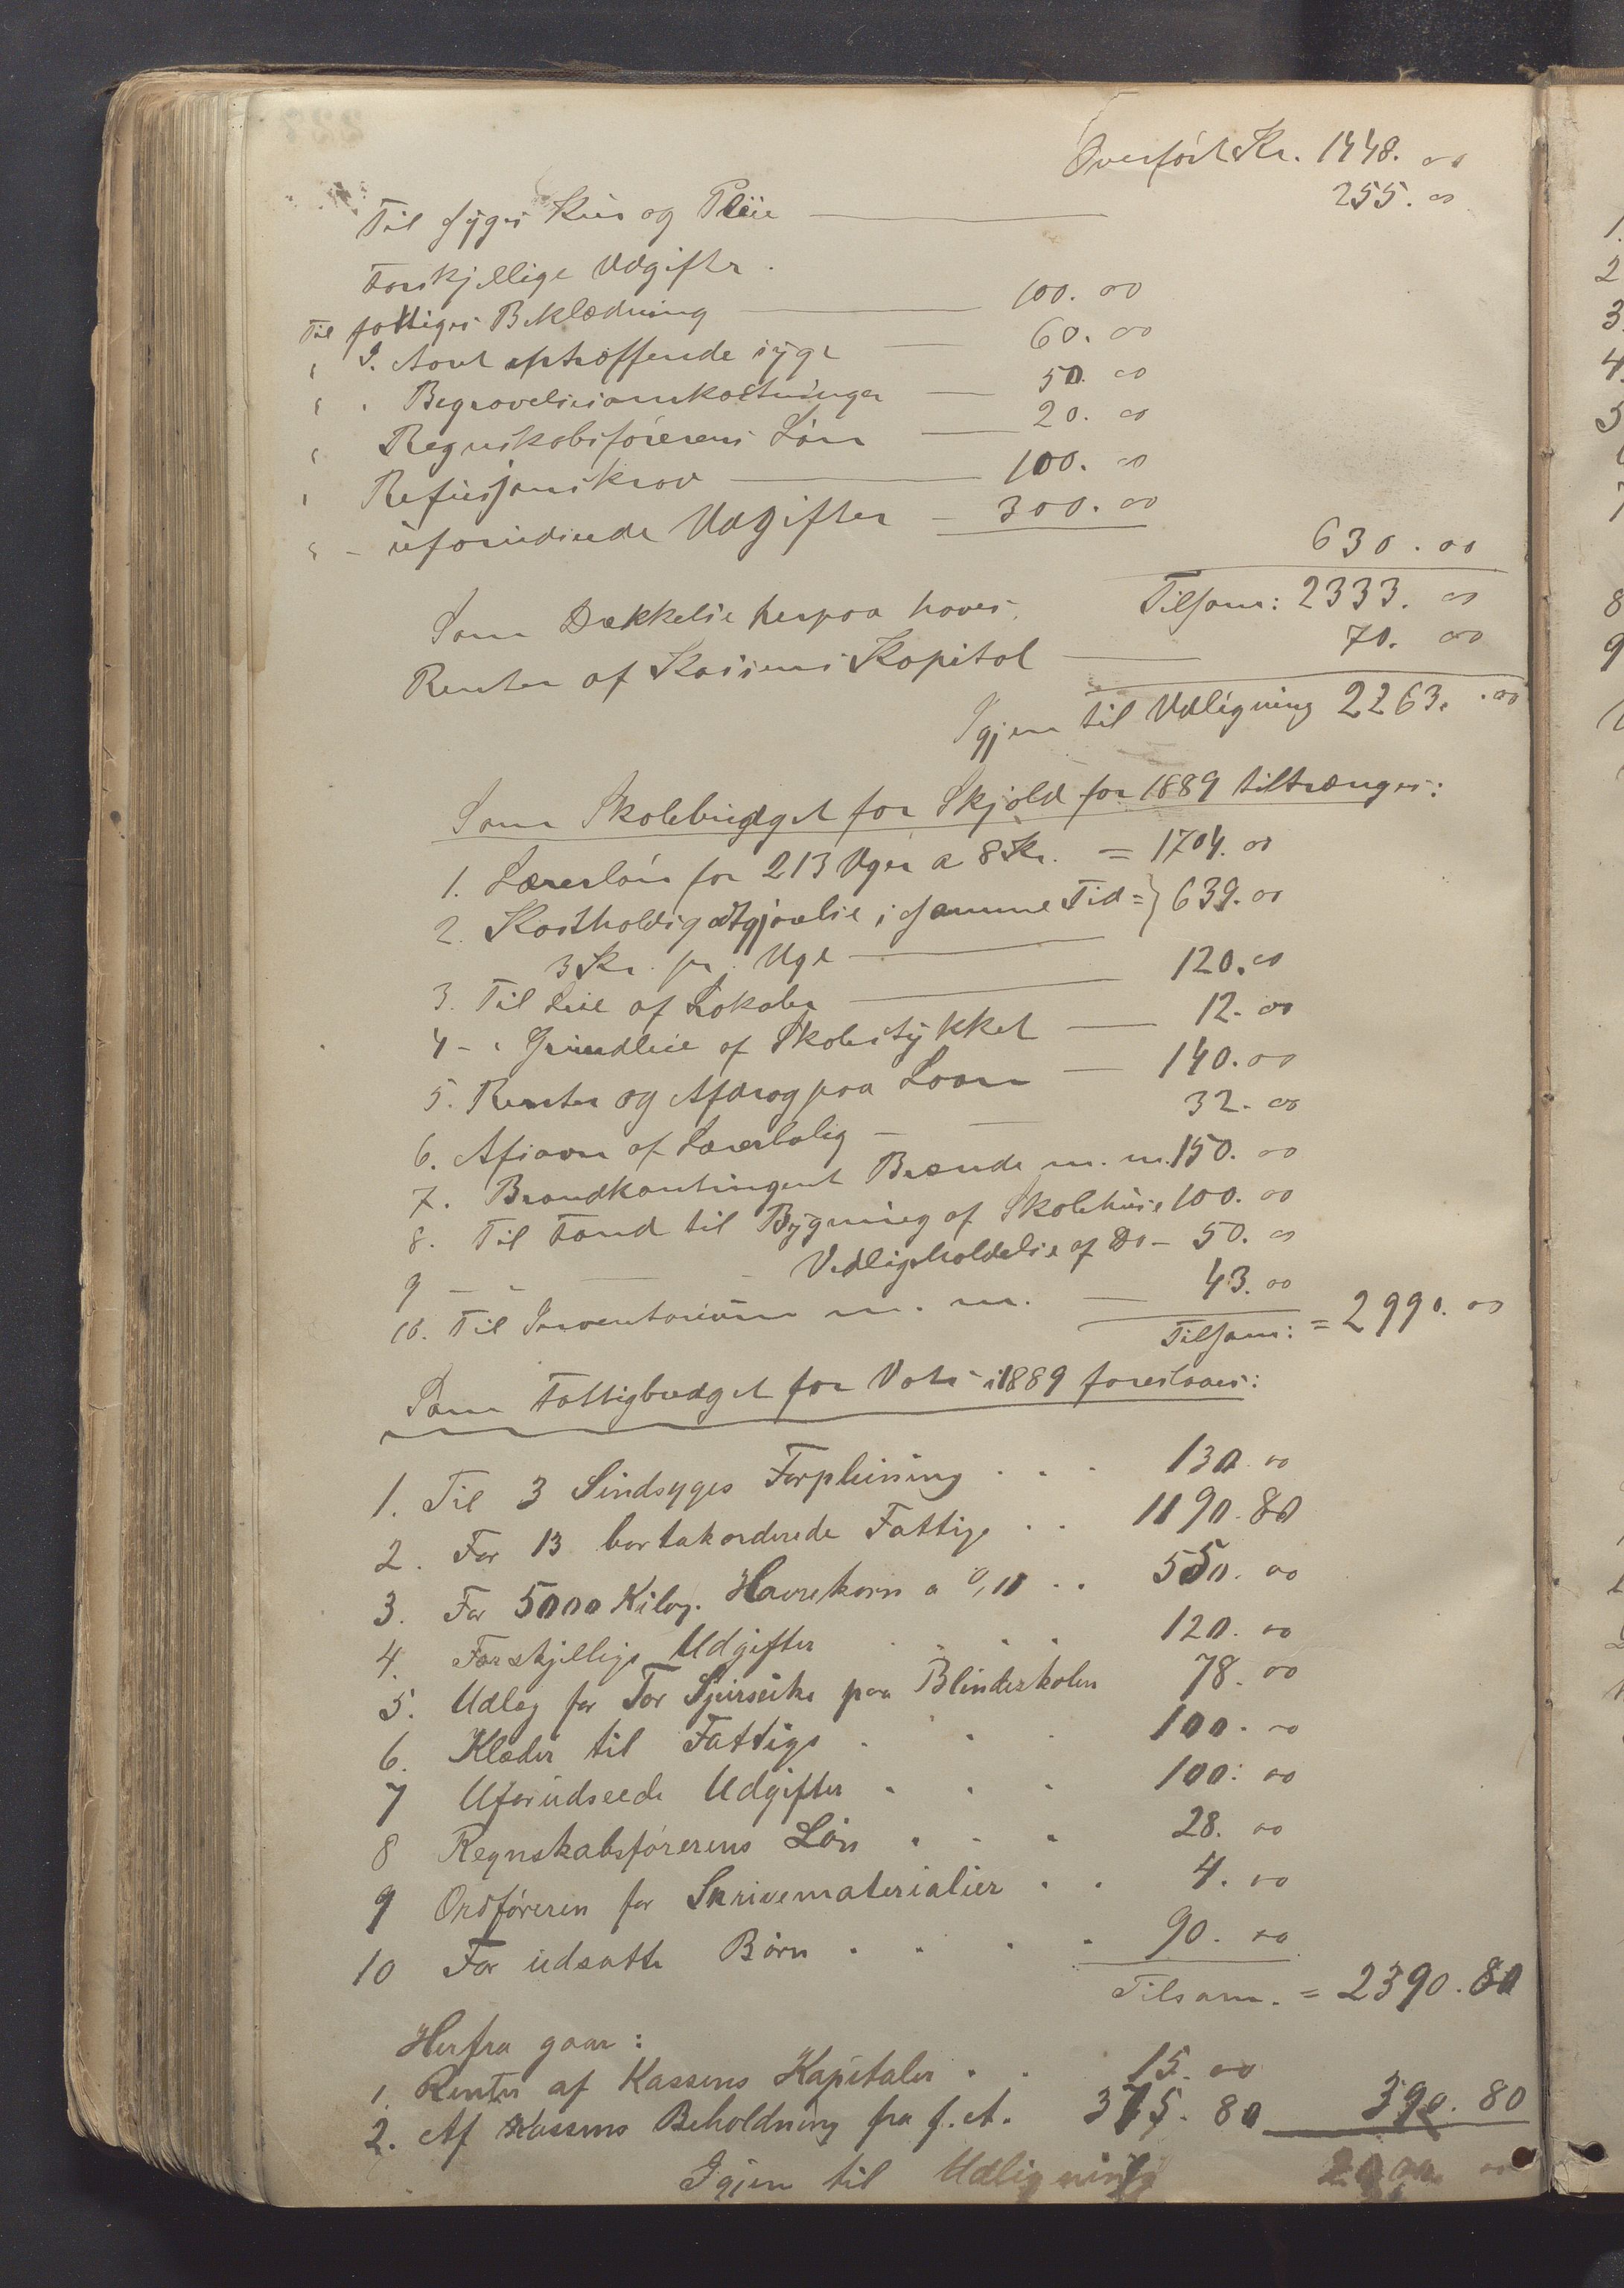 Overført Kr. 1448. 00
Til syges Kur og Pleie 255. 00
Forskjellige Udgifter.
Til fattiges Beklædning 100. 00
" I. Aaret indtræffende syge 60. 00
" " Begravelsesomkostninger 50. 00
" Regnskabsførerens Løn 20. 00
" Refusjonskrav 100. 00
" - uforudseede Udgifter - 300. 00
630. 00
Tilsam: 2333. 00
Som Dækkelse herpaa haves.
Renter af Kassens Kapital 70. 00
Igjen til Udligning 2263. 00
Som Skolebudget for Skjold for 1889 tiltrænges:
1. Lærerløn for 213 Uger a 8 Kr. = 1704. 00
2. Kostholdsgodtgjørelse i samme Tid = } 639. 00
3 Kr. pr. Uge
3. Til Leie af Lokaler 120. 00
4 - " Grundleie af Skolestykket 12. 00
5. Renter og Afdrag paa Laan 140. 00
6. Afsavn af Lærerbolig - 32. 00
7. Brandkontingent Brænde m. m. 150. 00
8. Til Fond til Bygning af Skolehuse 100. 00
9 - - - Vedligeholdelse af Do - 50. 00
10. Til Inventarium m. m. 43. 00
Tilsam: = 2990. 00
Som Fattigbudget for Vats i 1889 foreslaaes:
1. Til 3 Sindsyges Forpleining . . . 130. 00
2. For 13 bortakorderede Fattige . . 1190. 80
3. For 5000 Kilog. Havrekorn a 0,11 . . 550. 00
4. Forskjellige Udgifter . . . . 120. 00
5. Udlæg for Tor paa Blindeskolen 78. 00
6. Klæder til Fattige . . . 100. 00
7 Uforudseede Udgifter . . . 100. 00
8 Regnskabsførerens Løn . . . 28. 00
9 Ordføreren for Skrivematerialier . . 4. 00
10 For udsatte Børn . . . . 90. 00
Tilsam. = 2390. 80
Herfra gaar:
1. Renter af Kassens Kapitaler . . 15. 00
2. Af Kassens Beholdning fra f. A. 375. 80 390. 80
Igjen til Udligning 2000. 00